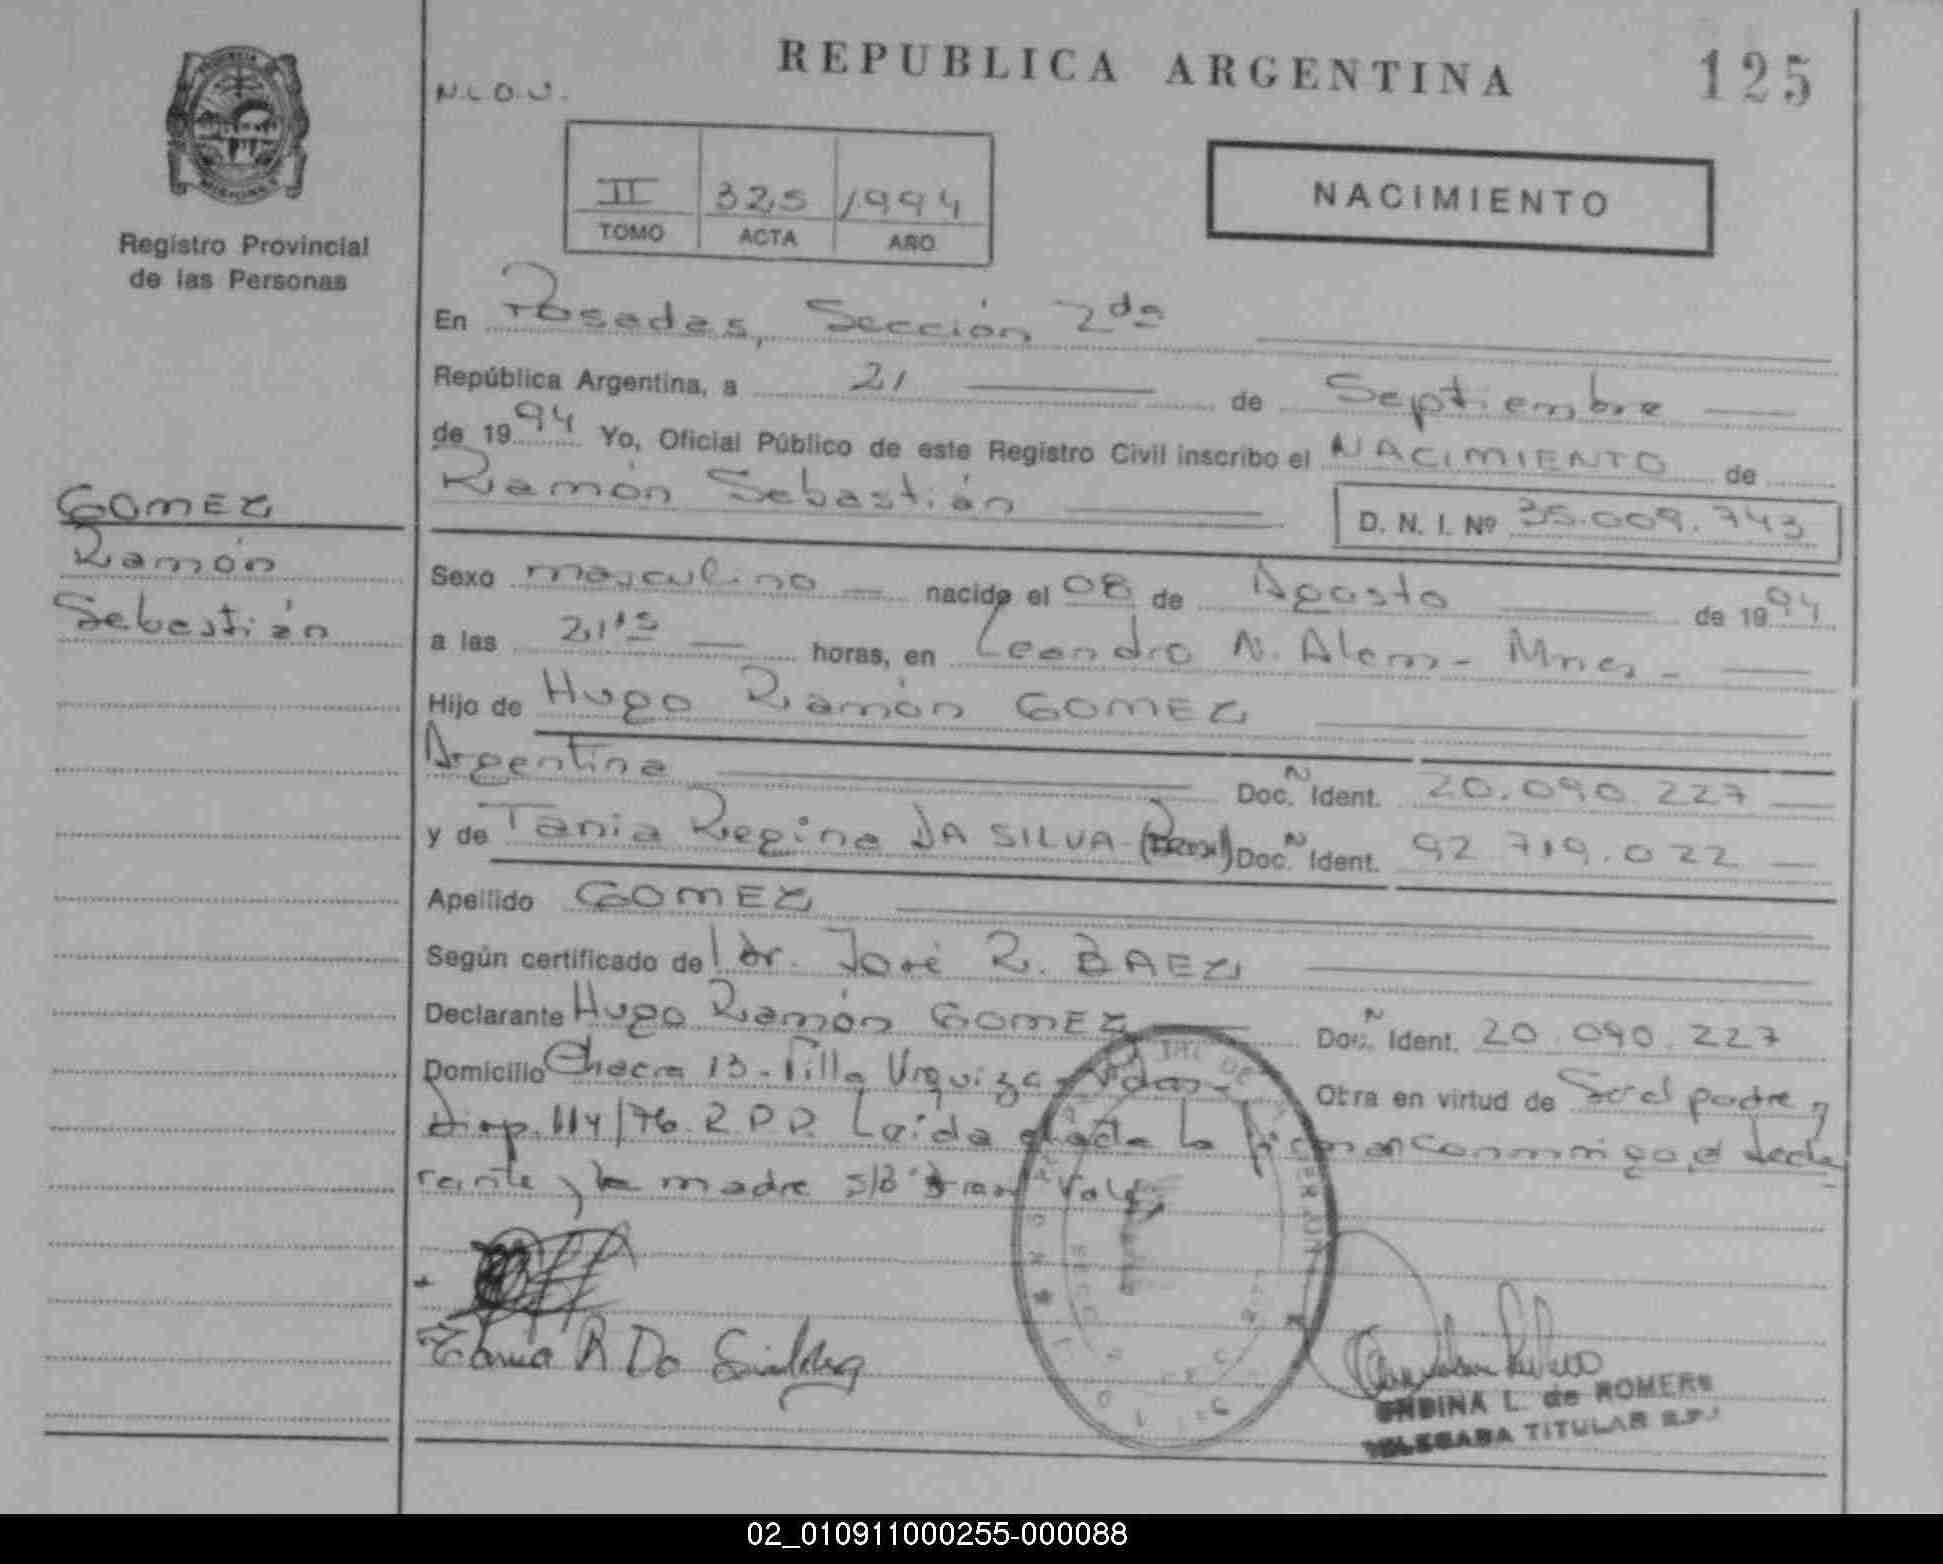 REPUBLICA ARGENTINA
125
N.L.O.V.
II 325 1994
TOMO ACTA AÑO
NACIMIENTO
Registro Provincial
de las Personas
GOMEZ
Ramón
Sebastián
En Posadas, Sección 2da
República Argentina, a 21 de Septiembre
de 1994 Yo, Oficial Público de este Registro Civil inscribo el NACIMIENTO de
Ramón Sebastián
D. N. I. Nº 35.009.743
Sexo masculino nacido el 08 de Agosto de 1994
a las 21,15 horas, en Leandro N. Alem - Mnes -
Hijo de Hugo Ramón GOMEZ
Argentina Doc. N Ident. 20.090.227
y de Tania Regina DA SILVA - (Brasil) Doc. N Ident. 92.719.022
Apellido GOMEZ
Según certificado del dr. José R. BAEZ
Declarante Hugo Ramón GOMEZ Doc. N Ident. 20.090.227
Domicilio Chacra 13 - Villa Urquiza - Pdas - Otra en virtud de Ser el padre y
Disp. 114/76 R.P.P. Leída el acta la firman conmigo, el decla
rante y la madre s/b Vale
Tania R Da Silva
L. de ROMERO
DELEGADA TITULAR R.P.
02_010911000255-000088